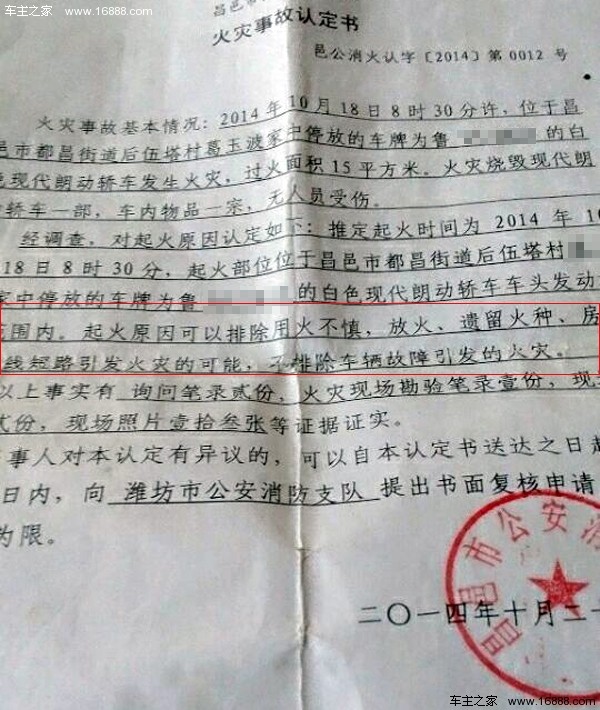 车主之家 www.16888.com
昌邑市
火灾事故认定书
邑公消火认字〔2014〕第 0012 号
火灾事故基本情况：2014年10月18日8时30分许，位于昌
邑市都昌街道后伍塔村葛玉波家中停放的车牌为鲁 的白
色现代朗动轿车发生火灾，过火面积15平方米。火灾烧毁现代朗
轿车一部，车内物品一宗，无人员受伤。
经调查，对起火原因认定如下：推定起火时间为 2014 年 10
18日8时30分，起火部位位于昌邑市都昌街道后伍塔村
家中停放的车牌为鲁 的白色现代朗动轿车车头发动
范围内。起火原因可以排除用火不慎，放火、遗留火种、房
线短路引发火灾的可能，不排除车辆故障引发的火灾。
以上事实有 询问笔录贰份，火灾现场勘验笔录壹份，现
贰份，现场照片壹拾叁张等证据证实。
事人对本认定有异议的，可以自本认定书送达之日起
日内，向 潍坊市公安消防支队 提出书面复核申请
为限。
昌邑市公安消
二〇一四年十月二十
车主之家 www.16888.com